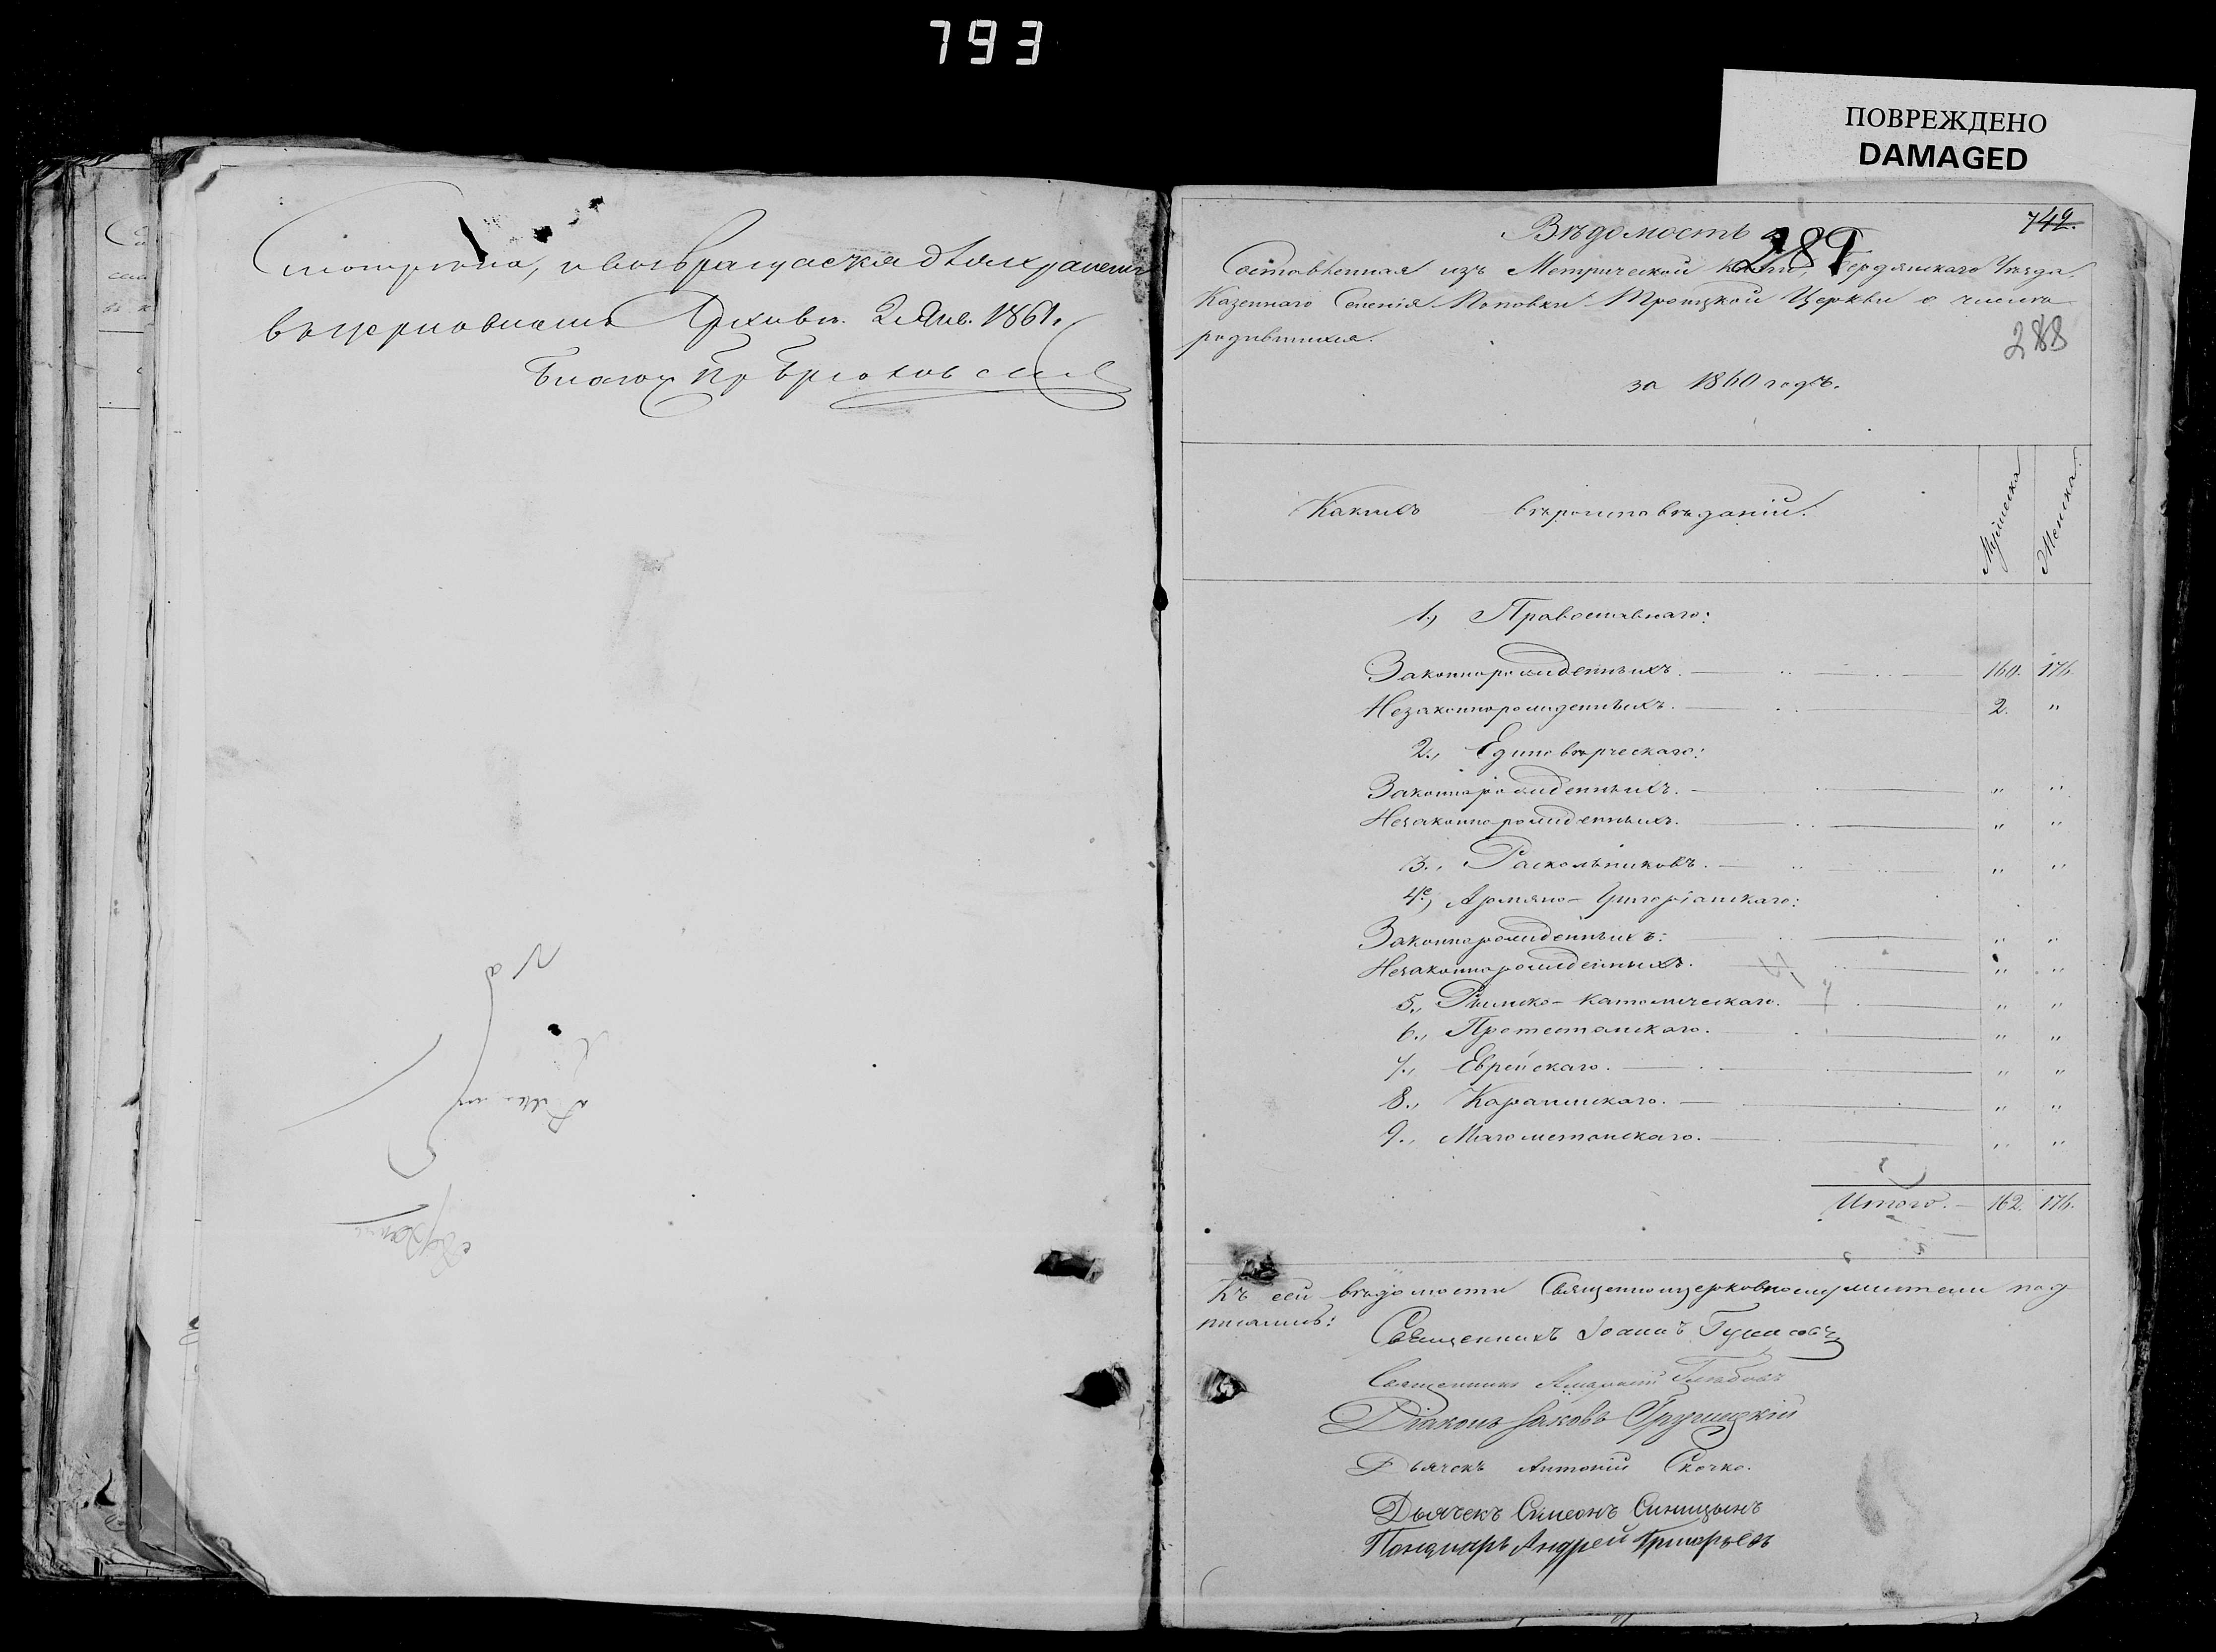 793
ПОВРЕЖДЕНО
DAMAGED
Смотрена, и возвращается для хранения
въ церковномъ Архивѣ. 2 Янв. 1861.
Благоч. Пр.
742.
Вѣдомость
289
Составленная изъ Метрической Книги, Бердянскаго Уѣзда,
Казеннаго Селенія Поповки Троицкой Церкви о числѣ
родившихся.
288
за 1860 годъ.
Какихъ вѣроисповѣданій.
Мужеска
Женска.
1., Православнаго:
Законнорожденныхъ. 160. 176.
Незаконнорожденныхъ. 2. "
2., Единовѣрческаго:
Законнорожденныхъ. " "
Незаконнорожденныхъ. " "
3., Раскольниковъ. " "
4е, Армяно-Григоріанскаго:
Законнорожденныхъ: " "
Незаконнорожденныхъ. " "
5., Римско-Католическаго. " "
6., Протестанскаго. " "
7., Еврейскаго. " "
8., Караимскаго. " "
9., Магометанскаго. " "
Итого. 162. 176.
Къ сей вѣдомости Священноцерковнослужители под-
писались:
Священникъ Іоаннъ
Священникъ
Діаконъ Іаковъ Грушецкій
Дьячекъ Антоній Скочко.
Дьячекъ Симеонъ Синицынъ
Пономарь Андрей Григорьевъ